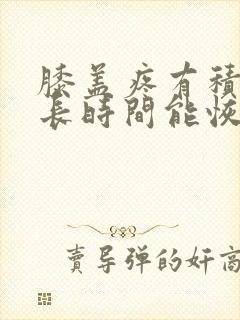 膝盖疼有積
長時間能恢
賣导弹的奸商